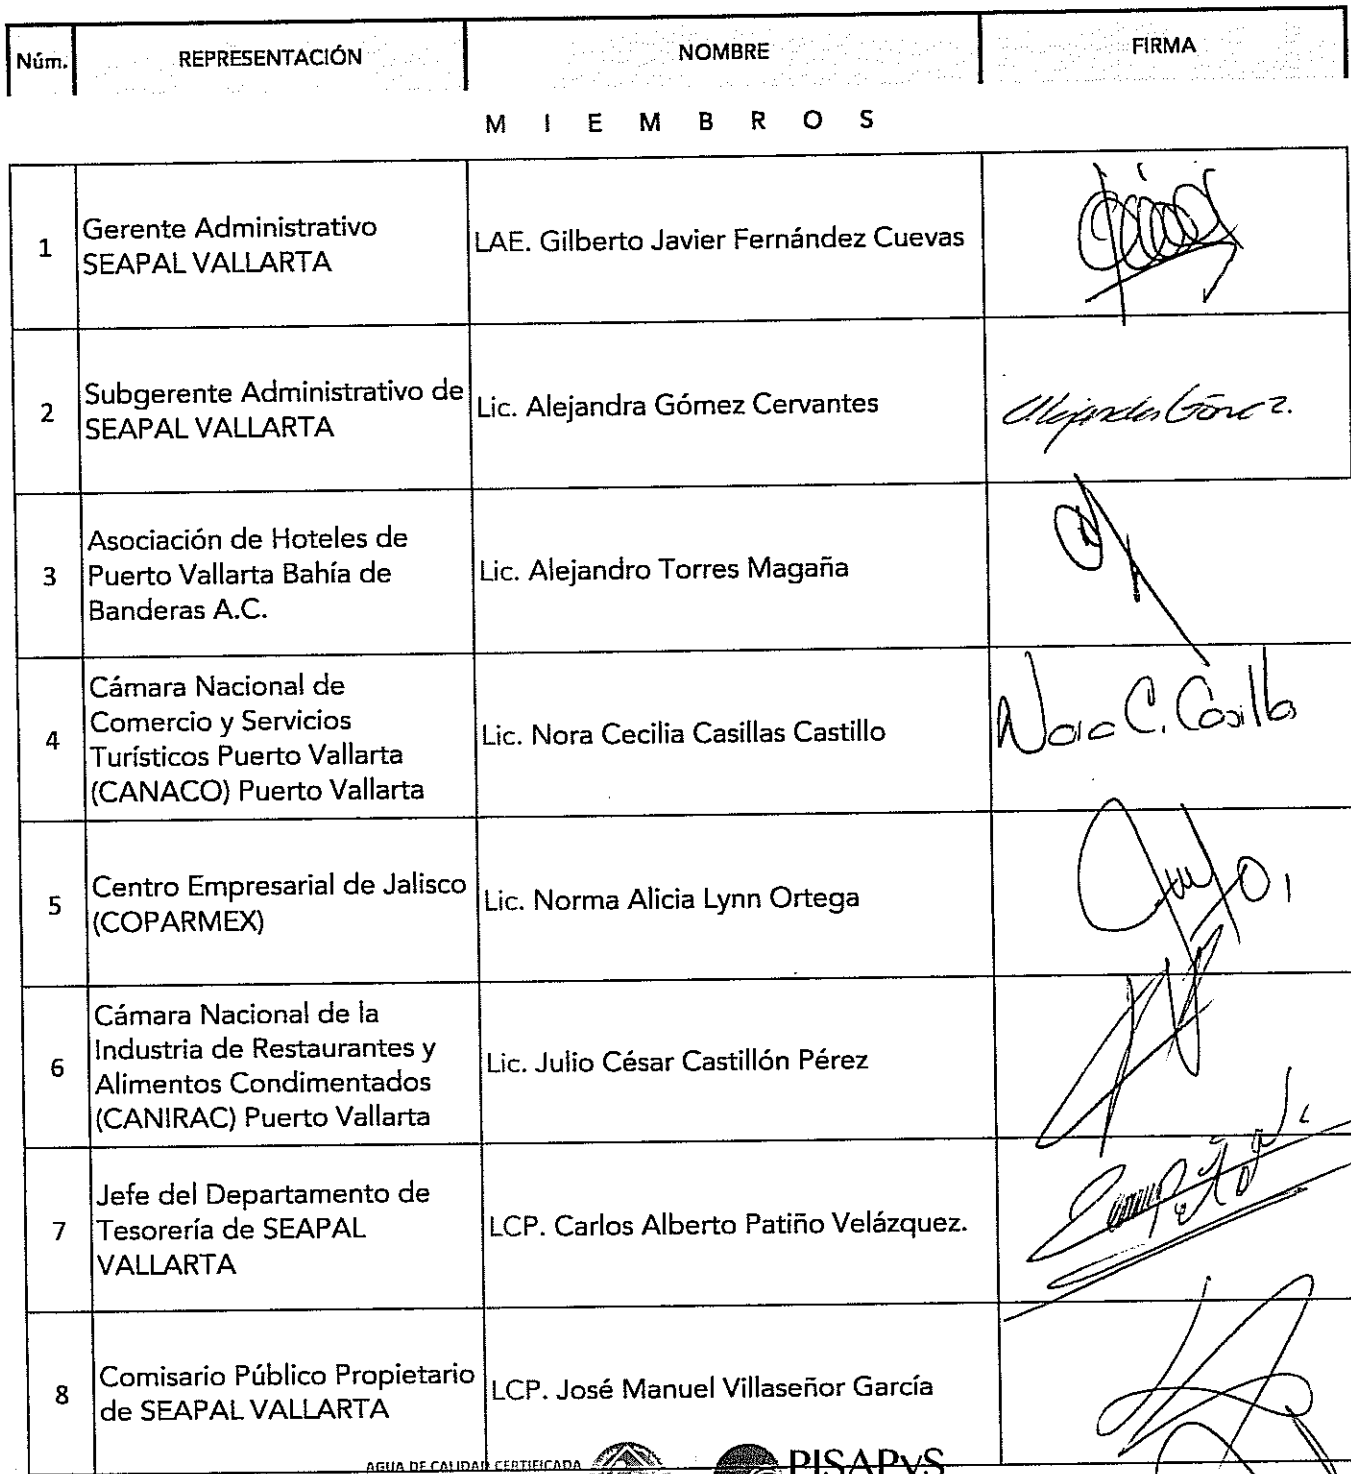 Núm. REPRESENTACIÓN NOMBRE FIRMA
M I E M B R O S
1
Gerente Administrativo
SEAPAL VALLARTA
LAE. Gilberto Javier Fernández Cuevas
2
Subgerente Administrativo de
SEAPAL VALLARTA
Lic. Alejandra Gómez Cervantes
Alejandra Gómez.
3
Asociación de Hoteles de
Puerto Vallarta Bahía de
Banderas A.C.
Lic. Alejandro Torres Magaña
4
Cámara Nacional de
Comercio y Servicios
Turísticos Puerto Vallarta
(CANACO) Puerto Vallarta
Lic. Nora Cecilia Casillas Castillo
Nora C. Casillas
5
Centro Empresarial de Jalisco
(COPARMEX)
Lic. Norma Alicia Lynn Ortega
6
Cámara Nacional de la
Industria de Restaurantes y
Alimentos Condimentados
(CANIRAC) Puerto Vallarta
Lic. Julio César Castillón Pérez
7
Jefe del Departamento de
Tesorería de SEAPAL
VALLARTA
LCP. Carlos Alberto Patiño Velázquez.
8
Comisario Público Propietario
de SEAPAL VALLARTA
LCP. José Manuel Villaseñor García
AGUA DE CALIDAD CERTIFICADA
PISAPyS